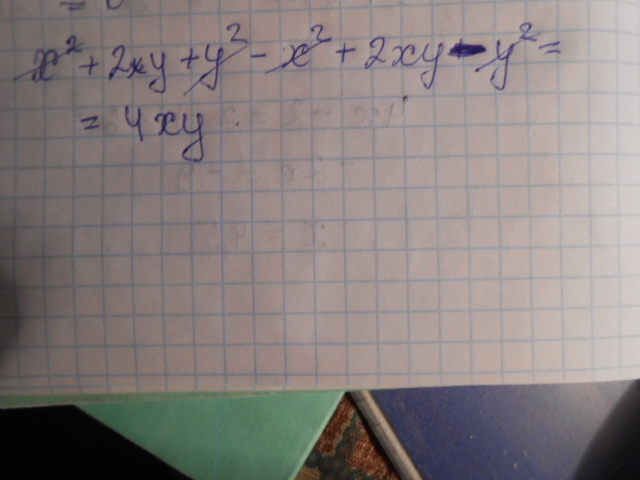 = 0
x² + 2xy + y² - x² + 2xy - y² =
= 4xy